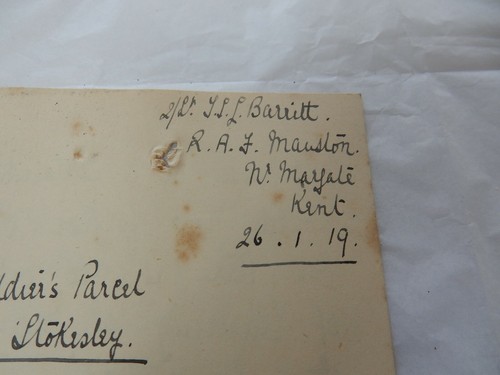 2/Lt. T.S.L. Barritt.
R. A. F. Manston.
Nr. Margate
Kent.
26 . 1 . 19.
ldier's Parcel
Stokesley.